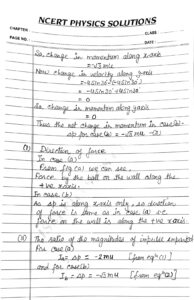 NCERT PHYSICS SOLUTIONS
CHAPTER
CLASS
PAGE
DATE
So, change in momentum along x-axis
= -√3 mu
Now change in velocity along y-axis
= -4 sin 30° - (-4 sin 30°)
= -4 sin 30 + 4 sin 30
= 0
So change in momentum along y axis
= 0
Thus the net change in momentum in case (b) -
Δp for case (b) = -√3 mu
(i) Direction of force
In case (a)
From fig (a) we can see,
Force by the ball on the wall along the
+ve x-axis.
In case (b)
As Δp is along x-axis only, so direction
of force is same as in case (a) i.e.
force on the wall is along the +ve x axis.
(ii) The ratio of the magnitudes of impulse imparted
For case (a)
Ia = Δp = -2mu [from eqⁿ (1)]
and for case (b)
Ib = Δp = -√3 mu [from eqⁿ (2)]